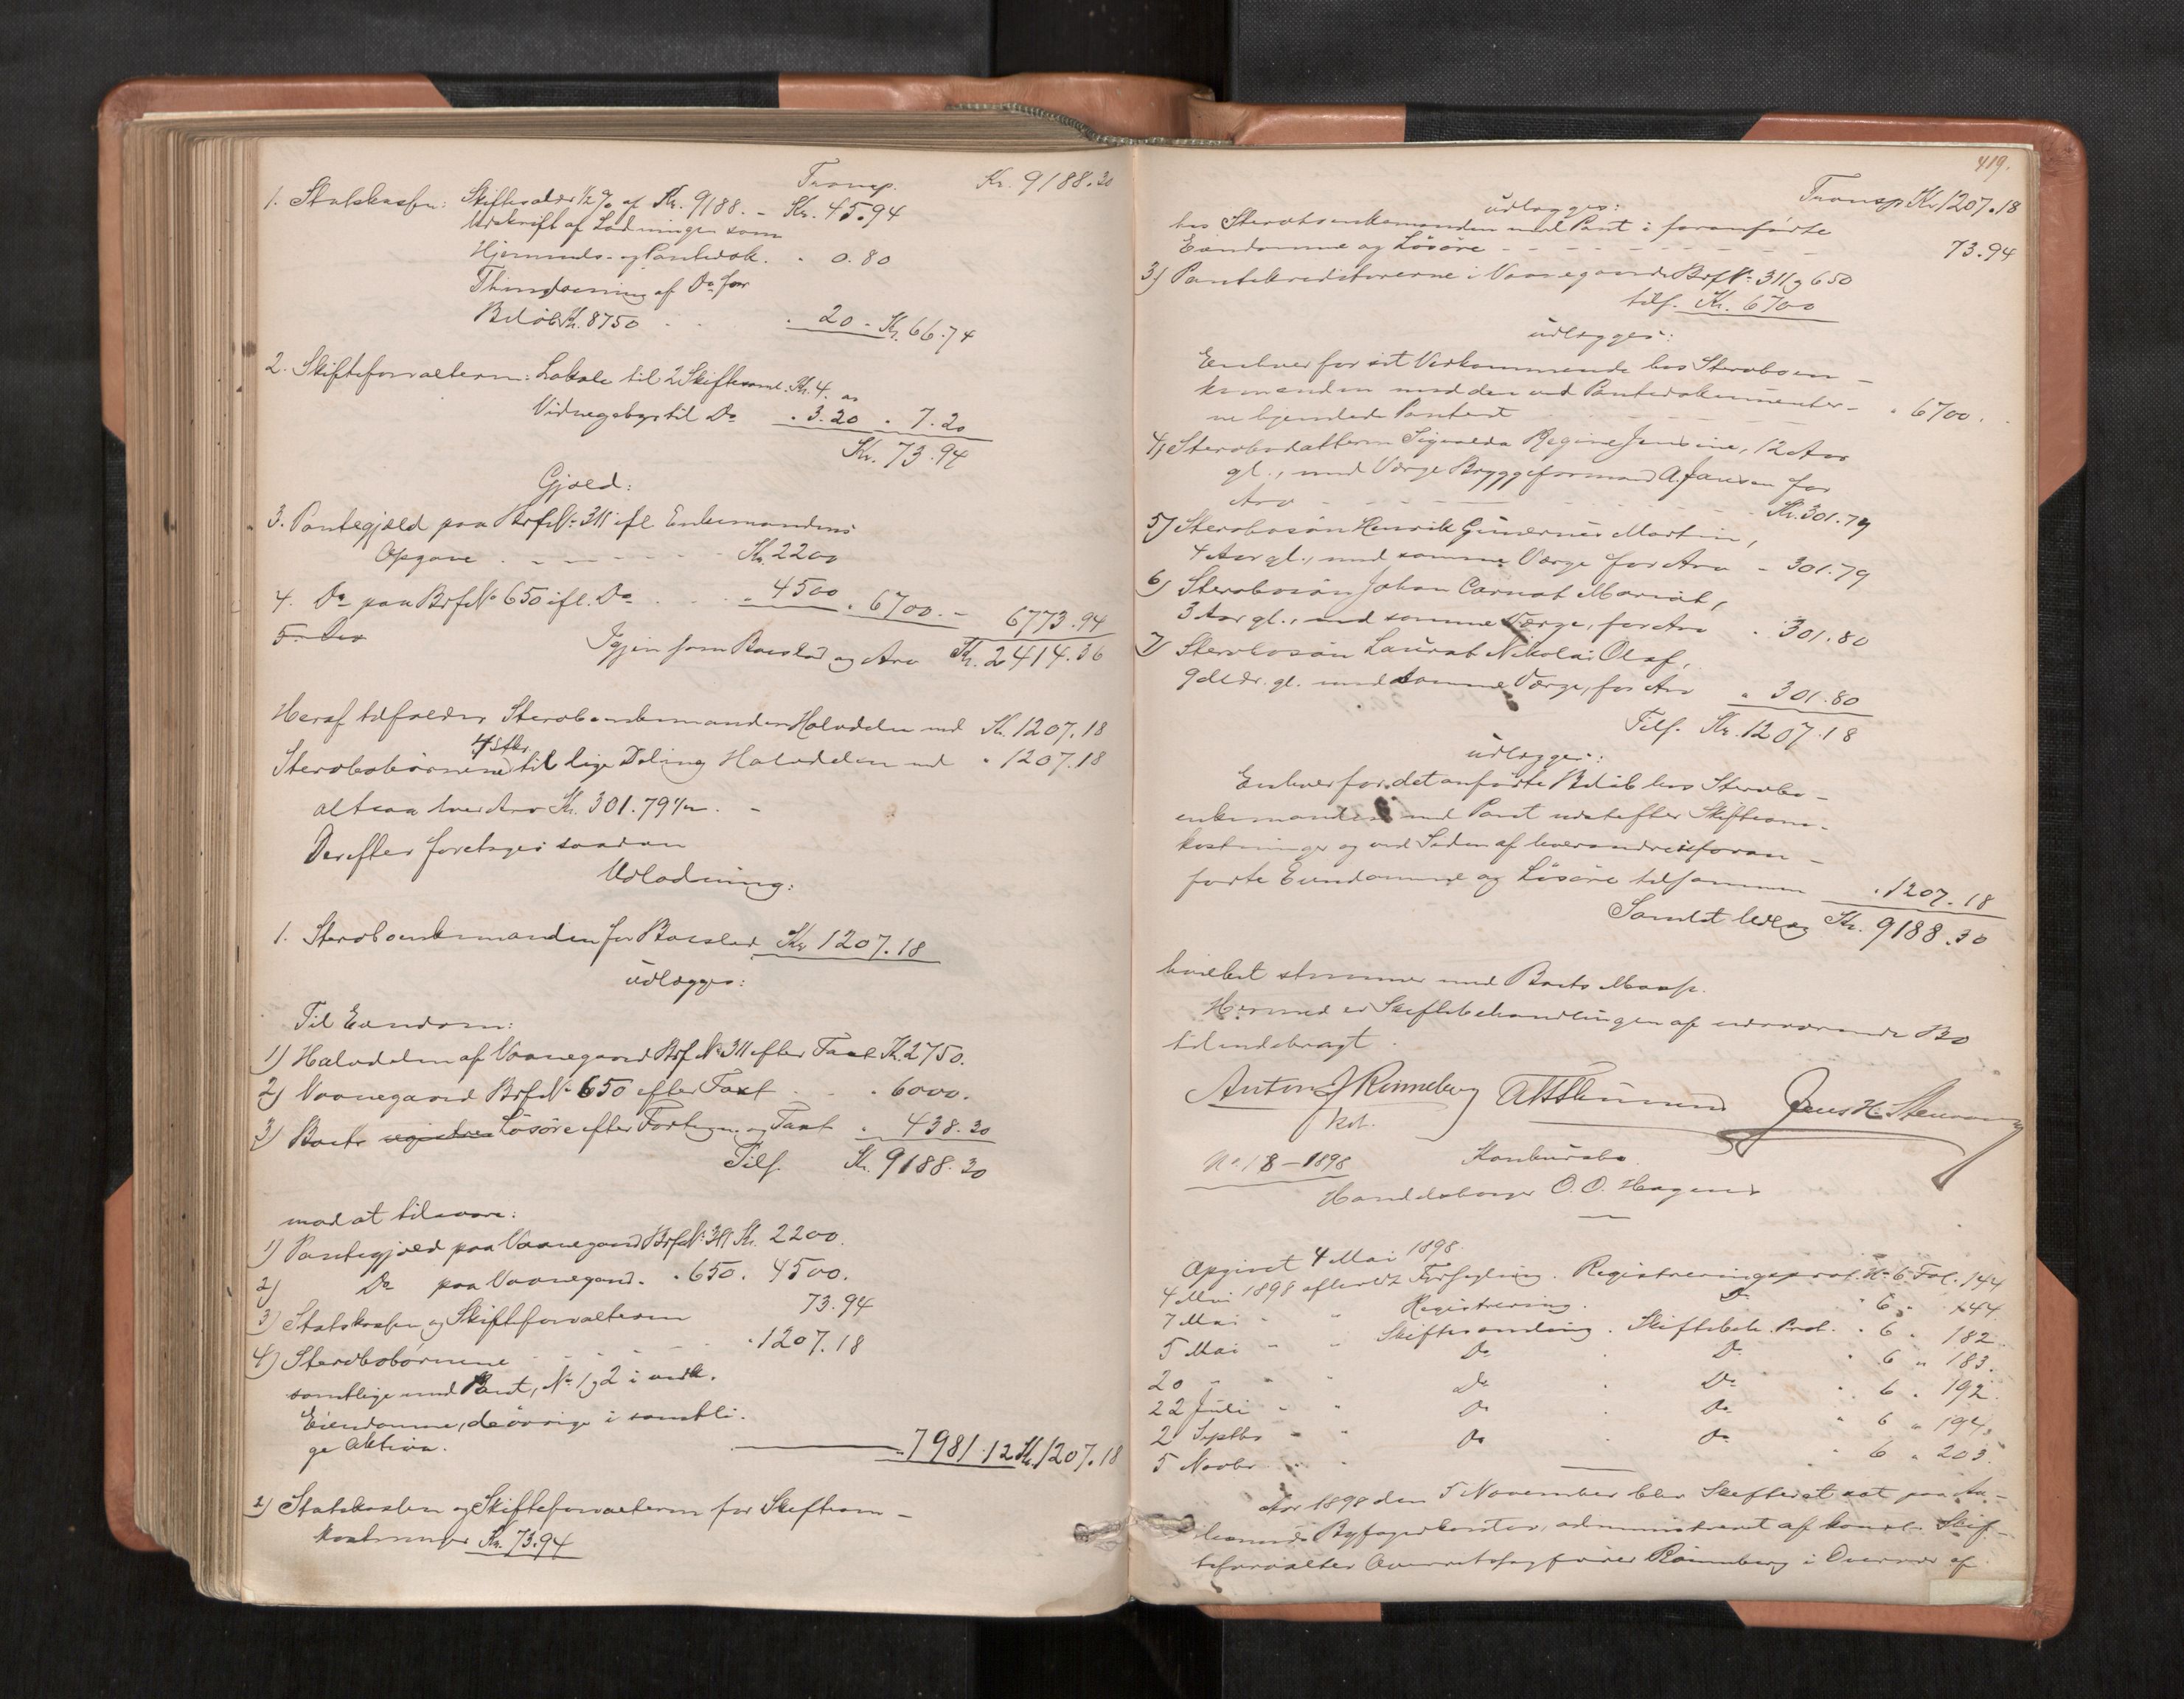 Transp. Kr. 9188.30
1. Statskassen: Skifteafgift ½ % af Kr. 9188. - Kr. 45.94
Udskrift af Lodningen som
Hjemmels- og Pantedok. " 0.80
Thinglæsning af Do for
Beløb Kr. 8750 . . " 20 - Kr. 66.74
2. Skifteforvalteren: Lokale til 2 Skiftesaml. Kr. 4.00
Vidnegebyr til Do " 3.20 " 7.20
Kr. 73.94
Gjæld:
3. Pantegjæld paa Brf. No 311 ifl. Enkemandens
Opgave . - - - - - Kr. 2200
4. Do paa Brf. No 650 ifl. Do . . " 4500 " 6700. - 6773.94
Igjen som Boeslod og Arv Kr. 2414.36
Heraf tilfalder Stervboenkemanden Halvdelen med Kr. 1207.18
4 stkr.
Stervbobørnene til lige Deling Halvdelen med " 1207.18
altsaa hver Arv Kr. 301.79½. -
Derefter foretages saadan
Udlodning:
1. Stervboenkemanden for Boeslod Kr. 1207.18
udlægges:
Til Eiendom:
1) Halvdelen af Vaaningsgaard Brf. No 311 efter Taxt Kr. 2750.
2) Vaanegaard Brf. No 650 efter Taxt . . " 6000.
3) Boets Løsøre efter Fortegn. og Taxt " 438.30
Tils. Kr. 9188.30
mod at tilsvare:
1) Pantegjæld paa Vaanegaard Brf. No 311 Kr. 2200.
2) Do paa Vaanegaard. " 650. 4500.
3) Statskassen og Skifteforvalteren 73.94
4) Stervbobørnene . - - - " 1207.18
samtlige med Pant, No 1 og 2 i vedk.
Eiendomme, de øvrige i samtli-
ge Aktiva. 7981.12 Kr. 1207.18
2) Statskassen og Skifteforvalteren for Skifteom-
kostninger Kr. 73.94
419.
Transp. Kr. 1207.18
udlægges:
hos Stervboenkemanden med Pant i foranførte
Eiendomme og Løsøre - - - - - 73.94
3) Pantekreditorerne i Vaanegaarde Brf. No 311 og 650
tils. Kr. 6700
udlægges:
Enhver for sit Vedkommende hos Stervboen-
kemanden med den ved Pantedokumenter-
ne hjemlede Panteret - - - - " 6700.
4) Stervbodatteren Signalda Regine Jensine, 12 Aar
gl., med Værge Bryggeformand A. Jansen for
Arv - - - - - Kr. 301.79
5) Stervbosøn Henrik Martin,
4 Aar gl., med samme Værge for Arv - 301.79
6) Stervbosøn Johan Mariat,
3 Aar gl., med samme Værge, for Arv " 301.80
7) Stervbosøn Nikolai Olaf,
9 Mdr. gl. med samme Værge, for Arv " 301.80
Tils. Kr. 1207.18
udlægges:
Enhver for det anførte Beløb hos Stervbo-
enkemanden med Pant næstefter Skifteom-
kostninger og ved Siden af hverandre i foran-
førte Eiendomme og Løsøre tilsammen " 1207.18
Samlet Udlæg Kr. 9188.30
hvilket stemmer med Boets Masse.
Hermed er Skiftebehandlingen af nærværende Bo
tilendebragt.
Anton J Rønneberg Jens H.
kst.
No 18 - 1898 Konkursbo
Handelsborger O. O. Hagens
Opgivet 4 Mai 1898.
4 Mai 1898 afholdt Forsegling. Registreringsprot. No 6 Fol. 144
7 Mai " " Registrering. Do " 6 " 144
5 Mai " " Skiftesamling. Skiftebeh. Prot. " 6 " 182
20 " " " Do Do " 6 " 183.
22 Juli " " Do . Do " 6 " 192
2 Septbr " " Do . Do " 6 " 194.
5 Novbr " " Do . Do " 6 " 203.
Aar 1898 den 5 November blev Skifteret sat paa Aa-
lesunds Byfogedkontor, administreret af konst. Skif-
teforvalter Overretssagfører Rønneberg i Overvær af